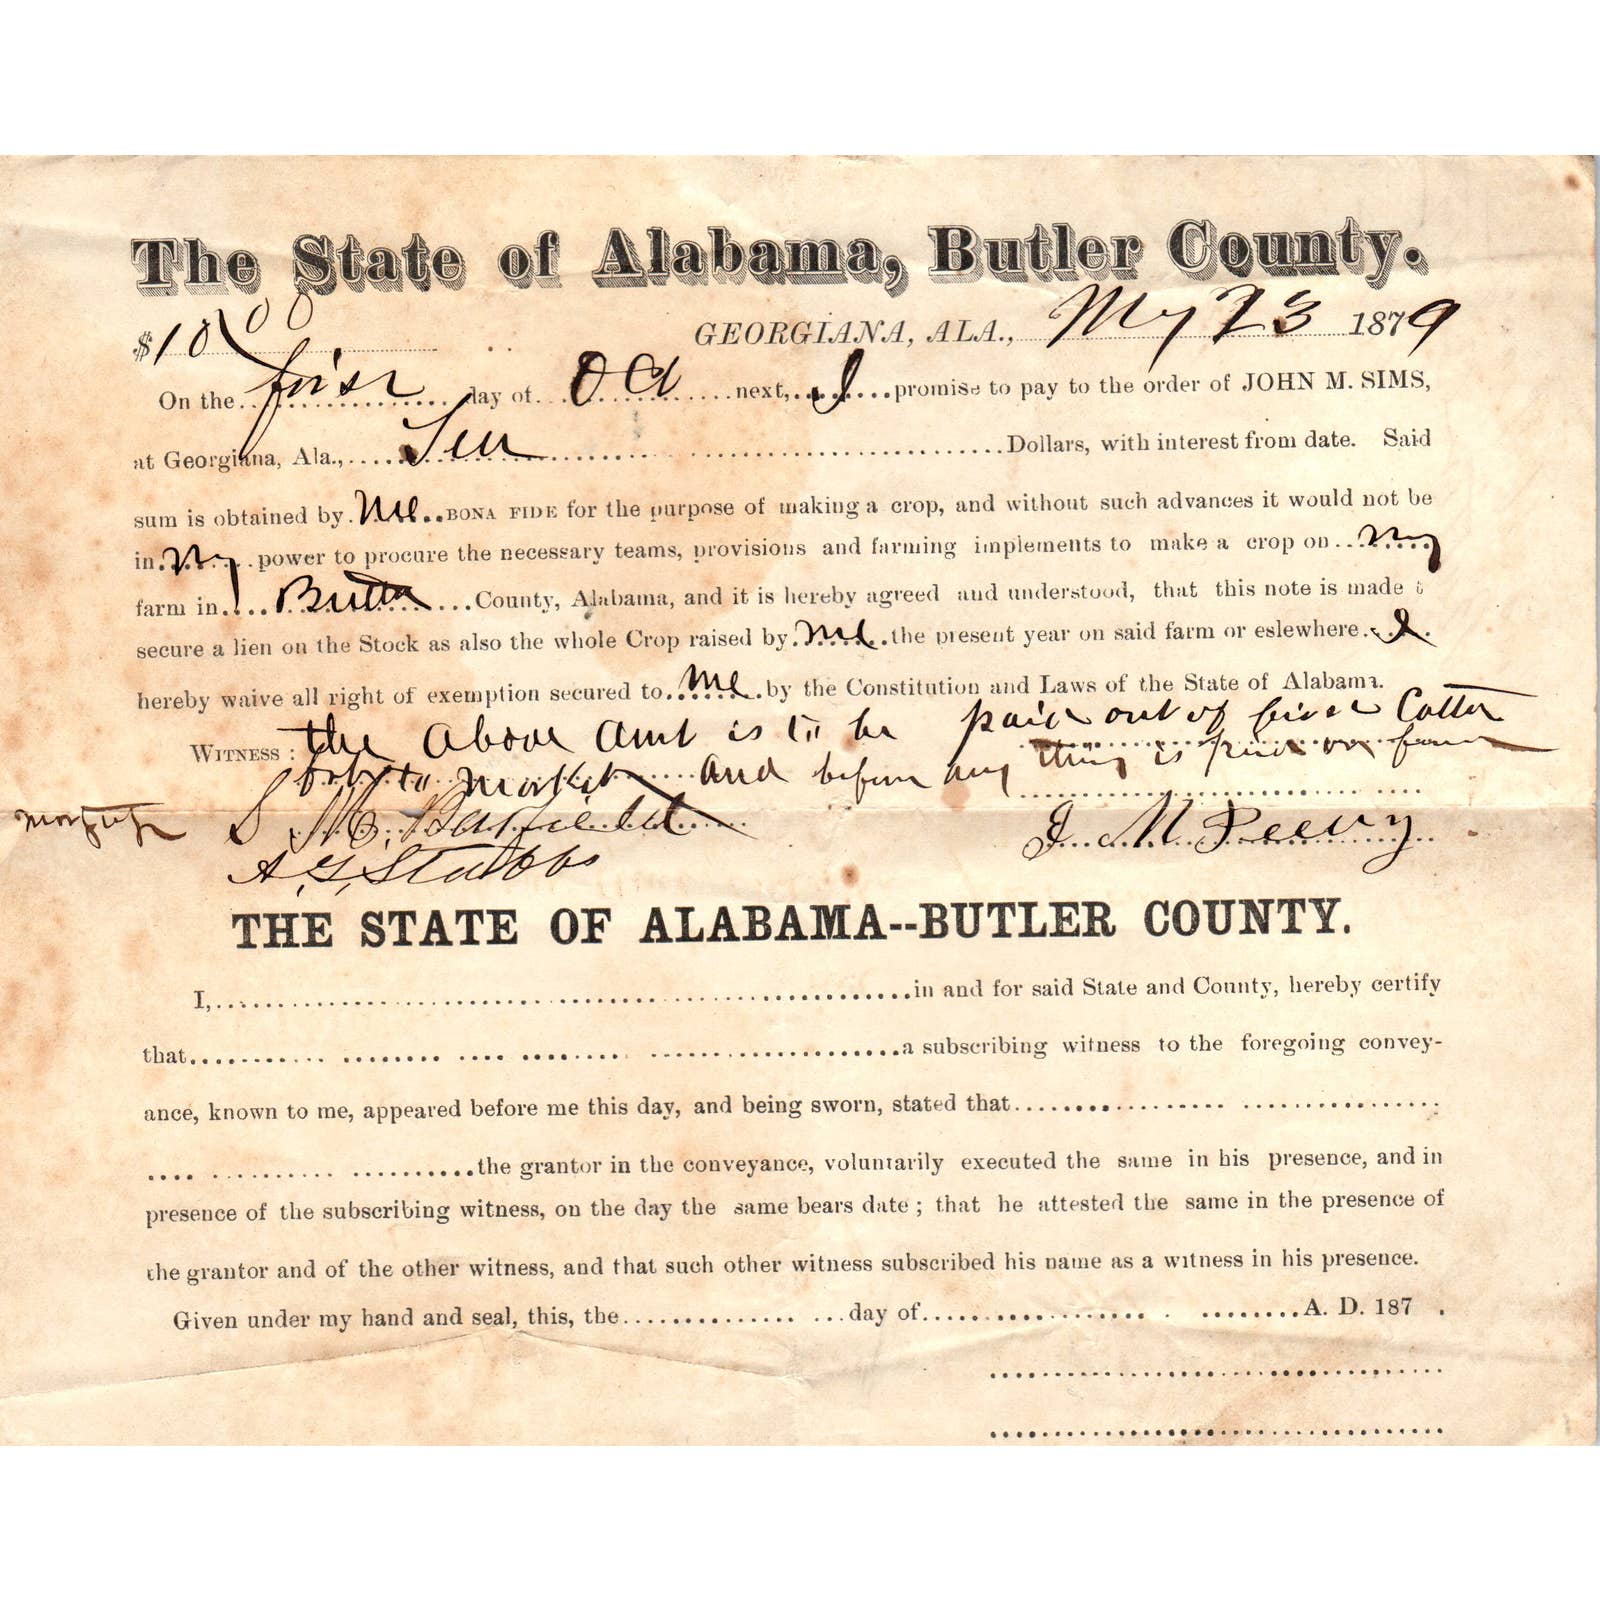 The State of Alabama, Butler County.
$10 00 GEORGIANA, ALA., My 23 1879
On the first day of Oct next, I promise to pay to the order of JOHN M. SIMS,
at Georgiana, Ala., Ten Dollars, with interest from date. Said
sum is obtained by me BONA FIDE for the purpose of making a crop, and without such advances it would not be
in my power to procure the necessary teams, provisions and farming implements to make a crop on my
farm in Butler County, Alabama, and it is hereby agreed and understood, that this note is made t
secure a lien on the Stock as also the whole Crop raised by me the present year on said farm or eslewhere. I
hereby waive all right of exemption secured to me by the Constitution and Laws of the State of Alabama.
WITNESS: the above amt is to be paid out of first Cotton
to market and before any thing is paid on
mortgage S. M. Barfield J M Peevy
A. G. Stubbs
THE STATE OF ALABAMA--BUTLER COUNTY.
I, in and for said State and County, hereby certify
that a subscribing witness to the foregoing convey-
ance, known to me, appeared before me this day, and being sworn, stated that
the grantor in the conveyance, voluntarily executed the same in his presence, and in
presence of the subscribing witness, on the day the same bears date; that he attested the same in the presence of
the grantor and of the other witness, and that such other witness subscribed his name as a witness in his presence.
Given under my hand and seal, this, the day of A. D. 187 .